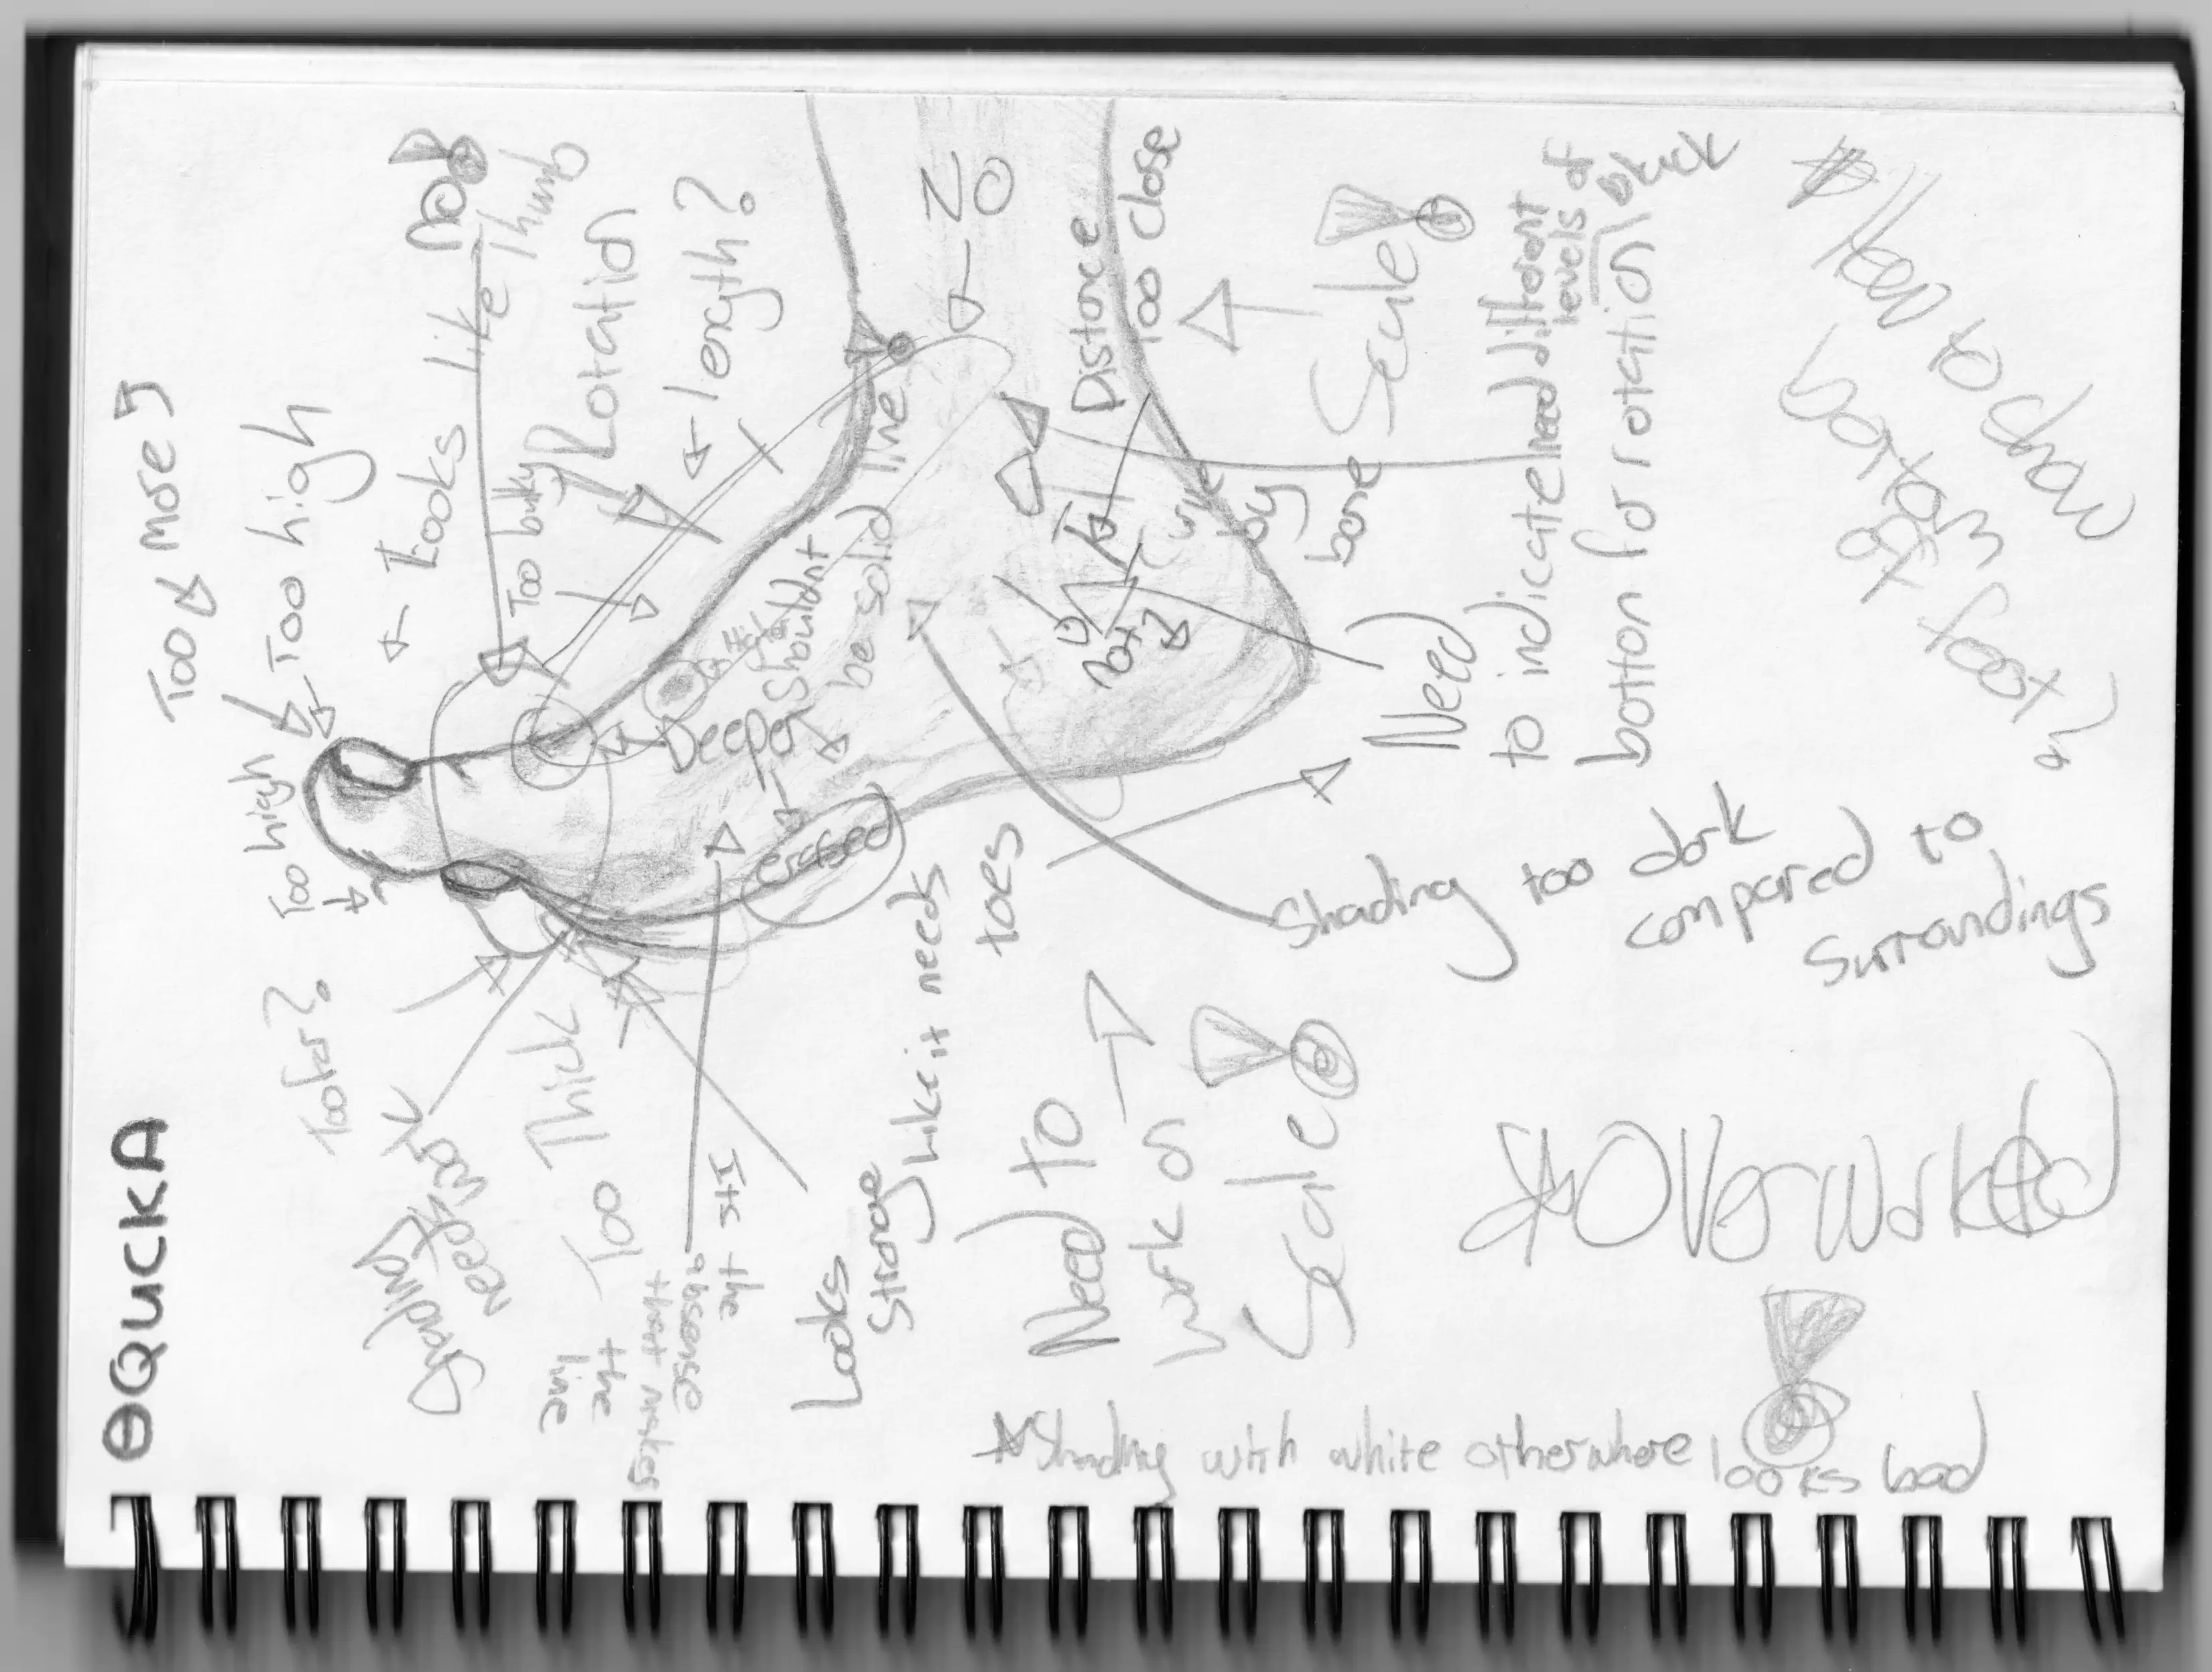 QUCKA
Too more
Too high
Too high
Looks like Thumb
Too bulky
Rotation
length?
NO
Distance
Too close
Scale
Need
to indicate need different
levels of
button for rotation
Shouldnt
be solid line
Deeper
erased
not?
by
bone
Too far?
Shading
needs work
Too Thick
Its the
absense
thet makes
the
line
Looks
Strange
Like it needs
toes
Need to
work on
Scale
Shading too dark
compared to
Surrondings
*Overworked
*Shading with white otherwhere looks bad